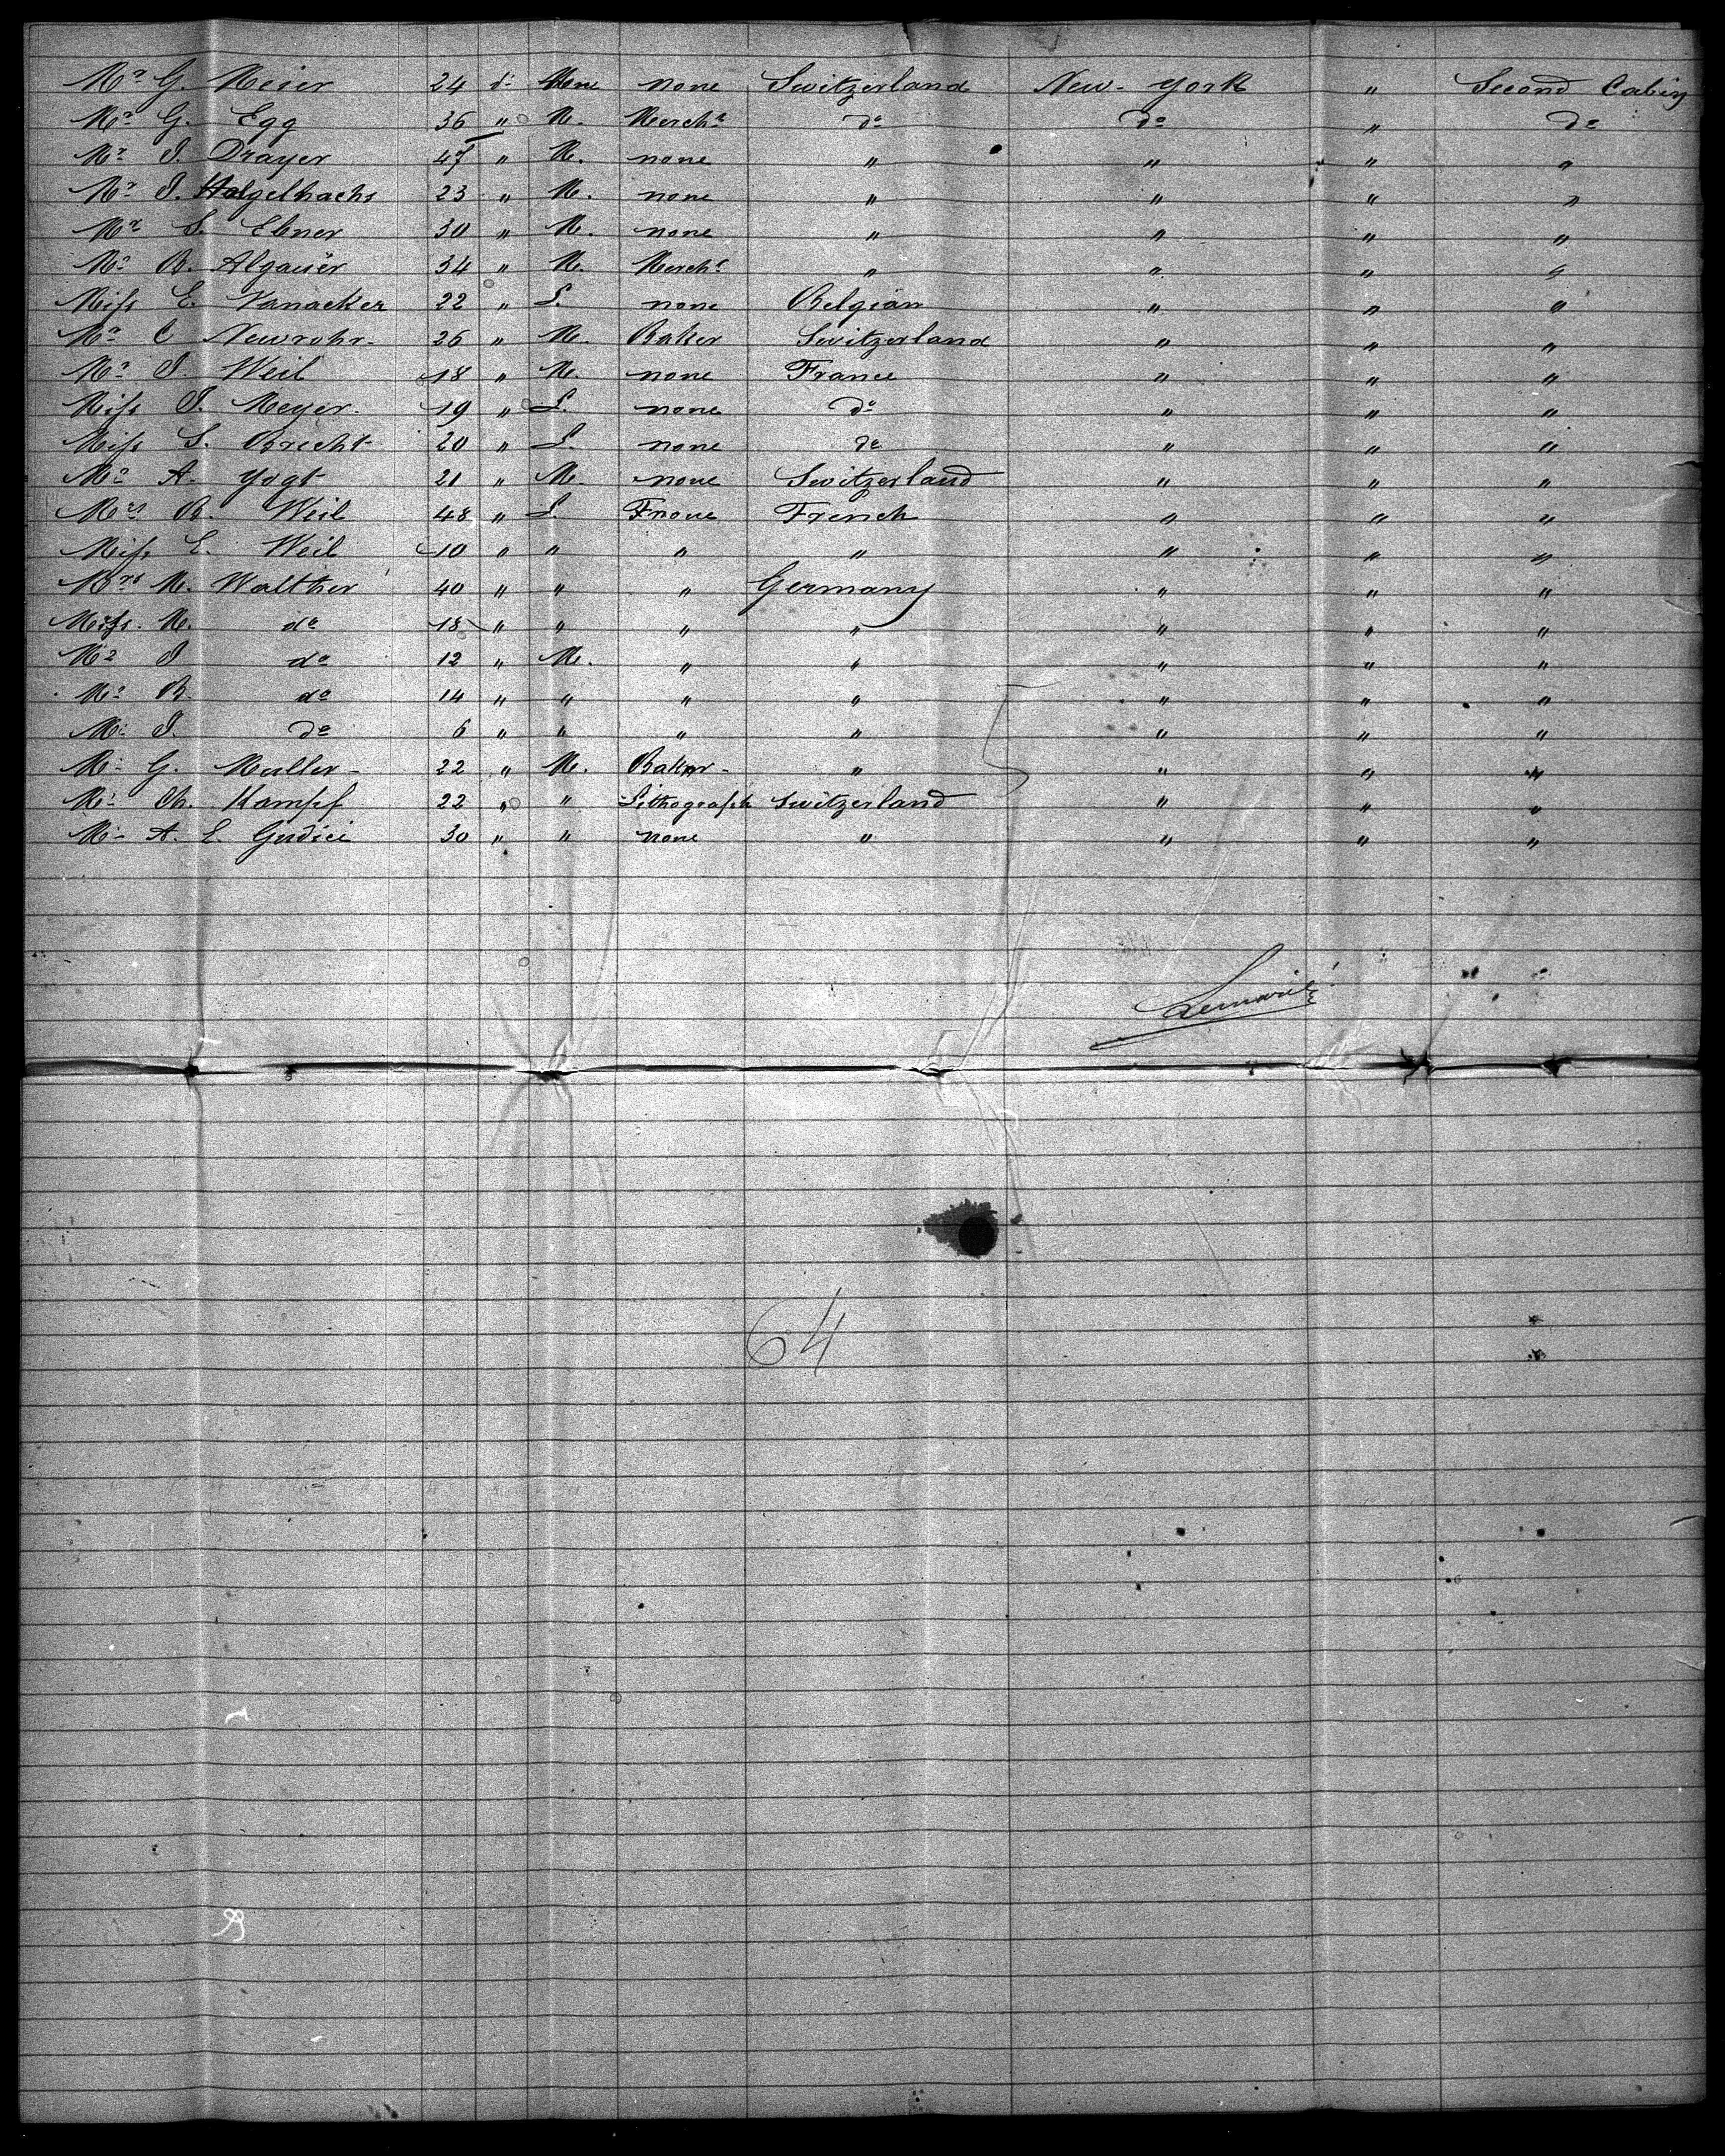 Mr G. Meier 24 do Men none Switzerland New-York " Second Cabin
Mr G. Egg 36 " M. Mercht do do " do
Mr J. Drayer 47 " M. none " " " "
Mr J. 23 " M. none " " " "
Mr S. Ebner 30 " M. none " " " "
Mr B. Algauer 34 " M. Mercht " " " "
Miss E. Vanacker 22 " L. none Belgian " " "
Mr C Newrohr- 26 " M. Baker Switzerland " " "
Mr J. Weil 18 " M. none France " " "
Miss J. Meyer. 19 " L. none do " " "
Miss S. Brecht 20 " L. none do " " "
Mr A. Yogt 21 " M. none Switzerland " " "
Mrs B. Weil 48 " L. none French " " "
Miss E. Weil 10 " " " " " " "
Mrs M. Walther 40 " " " Germany " " "
Miss. M. do 18 " " " " " " "
Mr J do 12 " M. " " " " "
Mr B do 14 " " " " " " "
Mr J. do 6 " " " " " " "
Mr G. Muller- 22 " M. Baker- " " " "
Mr Ch. Kampf 22 " " Lithograph Switzerland " " "
Mr A. E. Gudici 30 " " none " " " "
Lemarié
64